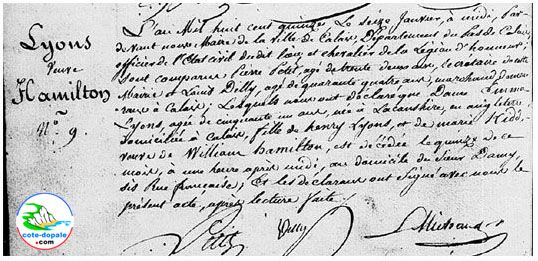 Lyons
veuve
Hamilton
N.º 9
L'an Mil huit cent quinze Le seize Janvier, à midi, Par-
devant nous Maire de la ville de Calais, Département du Pas de Calais,
officier de l'Etat civil dudit lieu et chevalier de la Légion d'honneur;
sont comparus Pierre Petit, agé de trente deux ans, secrétaire de cette
Mairie et Louis Dilly, agé de quarante quatre ans, marchand
à Calais; Lesquels nous ont déclaré que Dame Emma
Lyons, agée de cinquante un ans, née à Lalanshire, en angleterre,
domiciliée à Calais, fille de henry Lyons, et de marie Kidd,
veuve de William hamilton; est décédée le quinze de ce
mois, à une heure après midi, au domicile du Sieur Damy,
sis Rue française; Et les déclarans ont Signé avec nous le
présent acte, après lecture faite.
Petit
Dilly
cote-dopale
.com